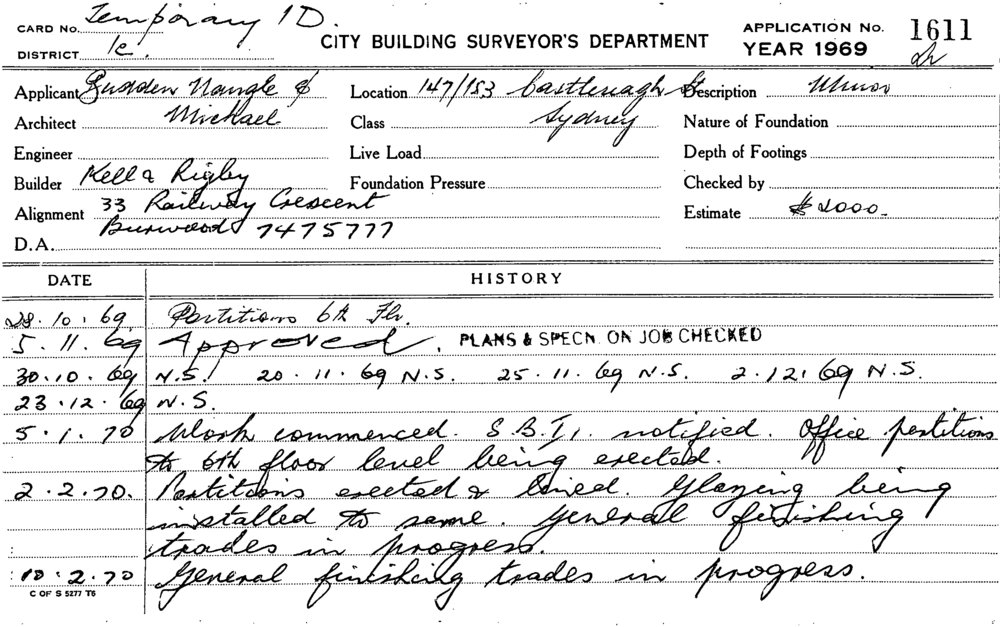 CARD No. Temporary 1D.
DISTRICT 1c
CITY BUILDING SURVEYOR'S DEPARTMENT
APPLICATION No. 1611
YEAR 1969
Applicant Budden Nangle &
Architect Michael
Engineer
Builder Kell & Rigby
Alignment 33 Railway Crescent
Burwood 7475777
D.A.
Location 147/153 Castlereagh St
Class Sydney
Live Load
Foundation Pressure
Description Minor
Nature of Foundation
Depth of Footings
Checked by
Estimate $2000.
DATE HISTORY
28.10.69 Partitions 6th Flr.
5.11.69 Approved. PLANS & SPECN. ON JOB CHECKED
30.10.69 N.S. 20.11.69 N.S. 25.11.69 N.S. 2.12.69 N.S.
23.12.69 N.S.
5.1.70 Work commenced. S.B.I. notified. Office partitions
to 6th floor level being erected.
2.2.70. Partitions erected & lined. Glazing being
installed to same. General finishing
trades in progress.
10.2.70 General finishing trades in progress.
C OF S 5277 T6